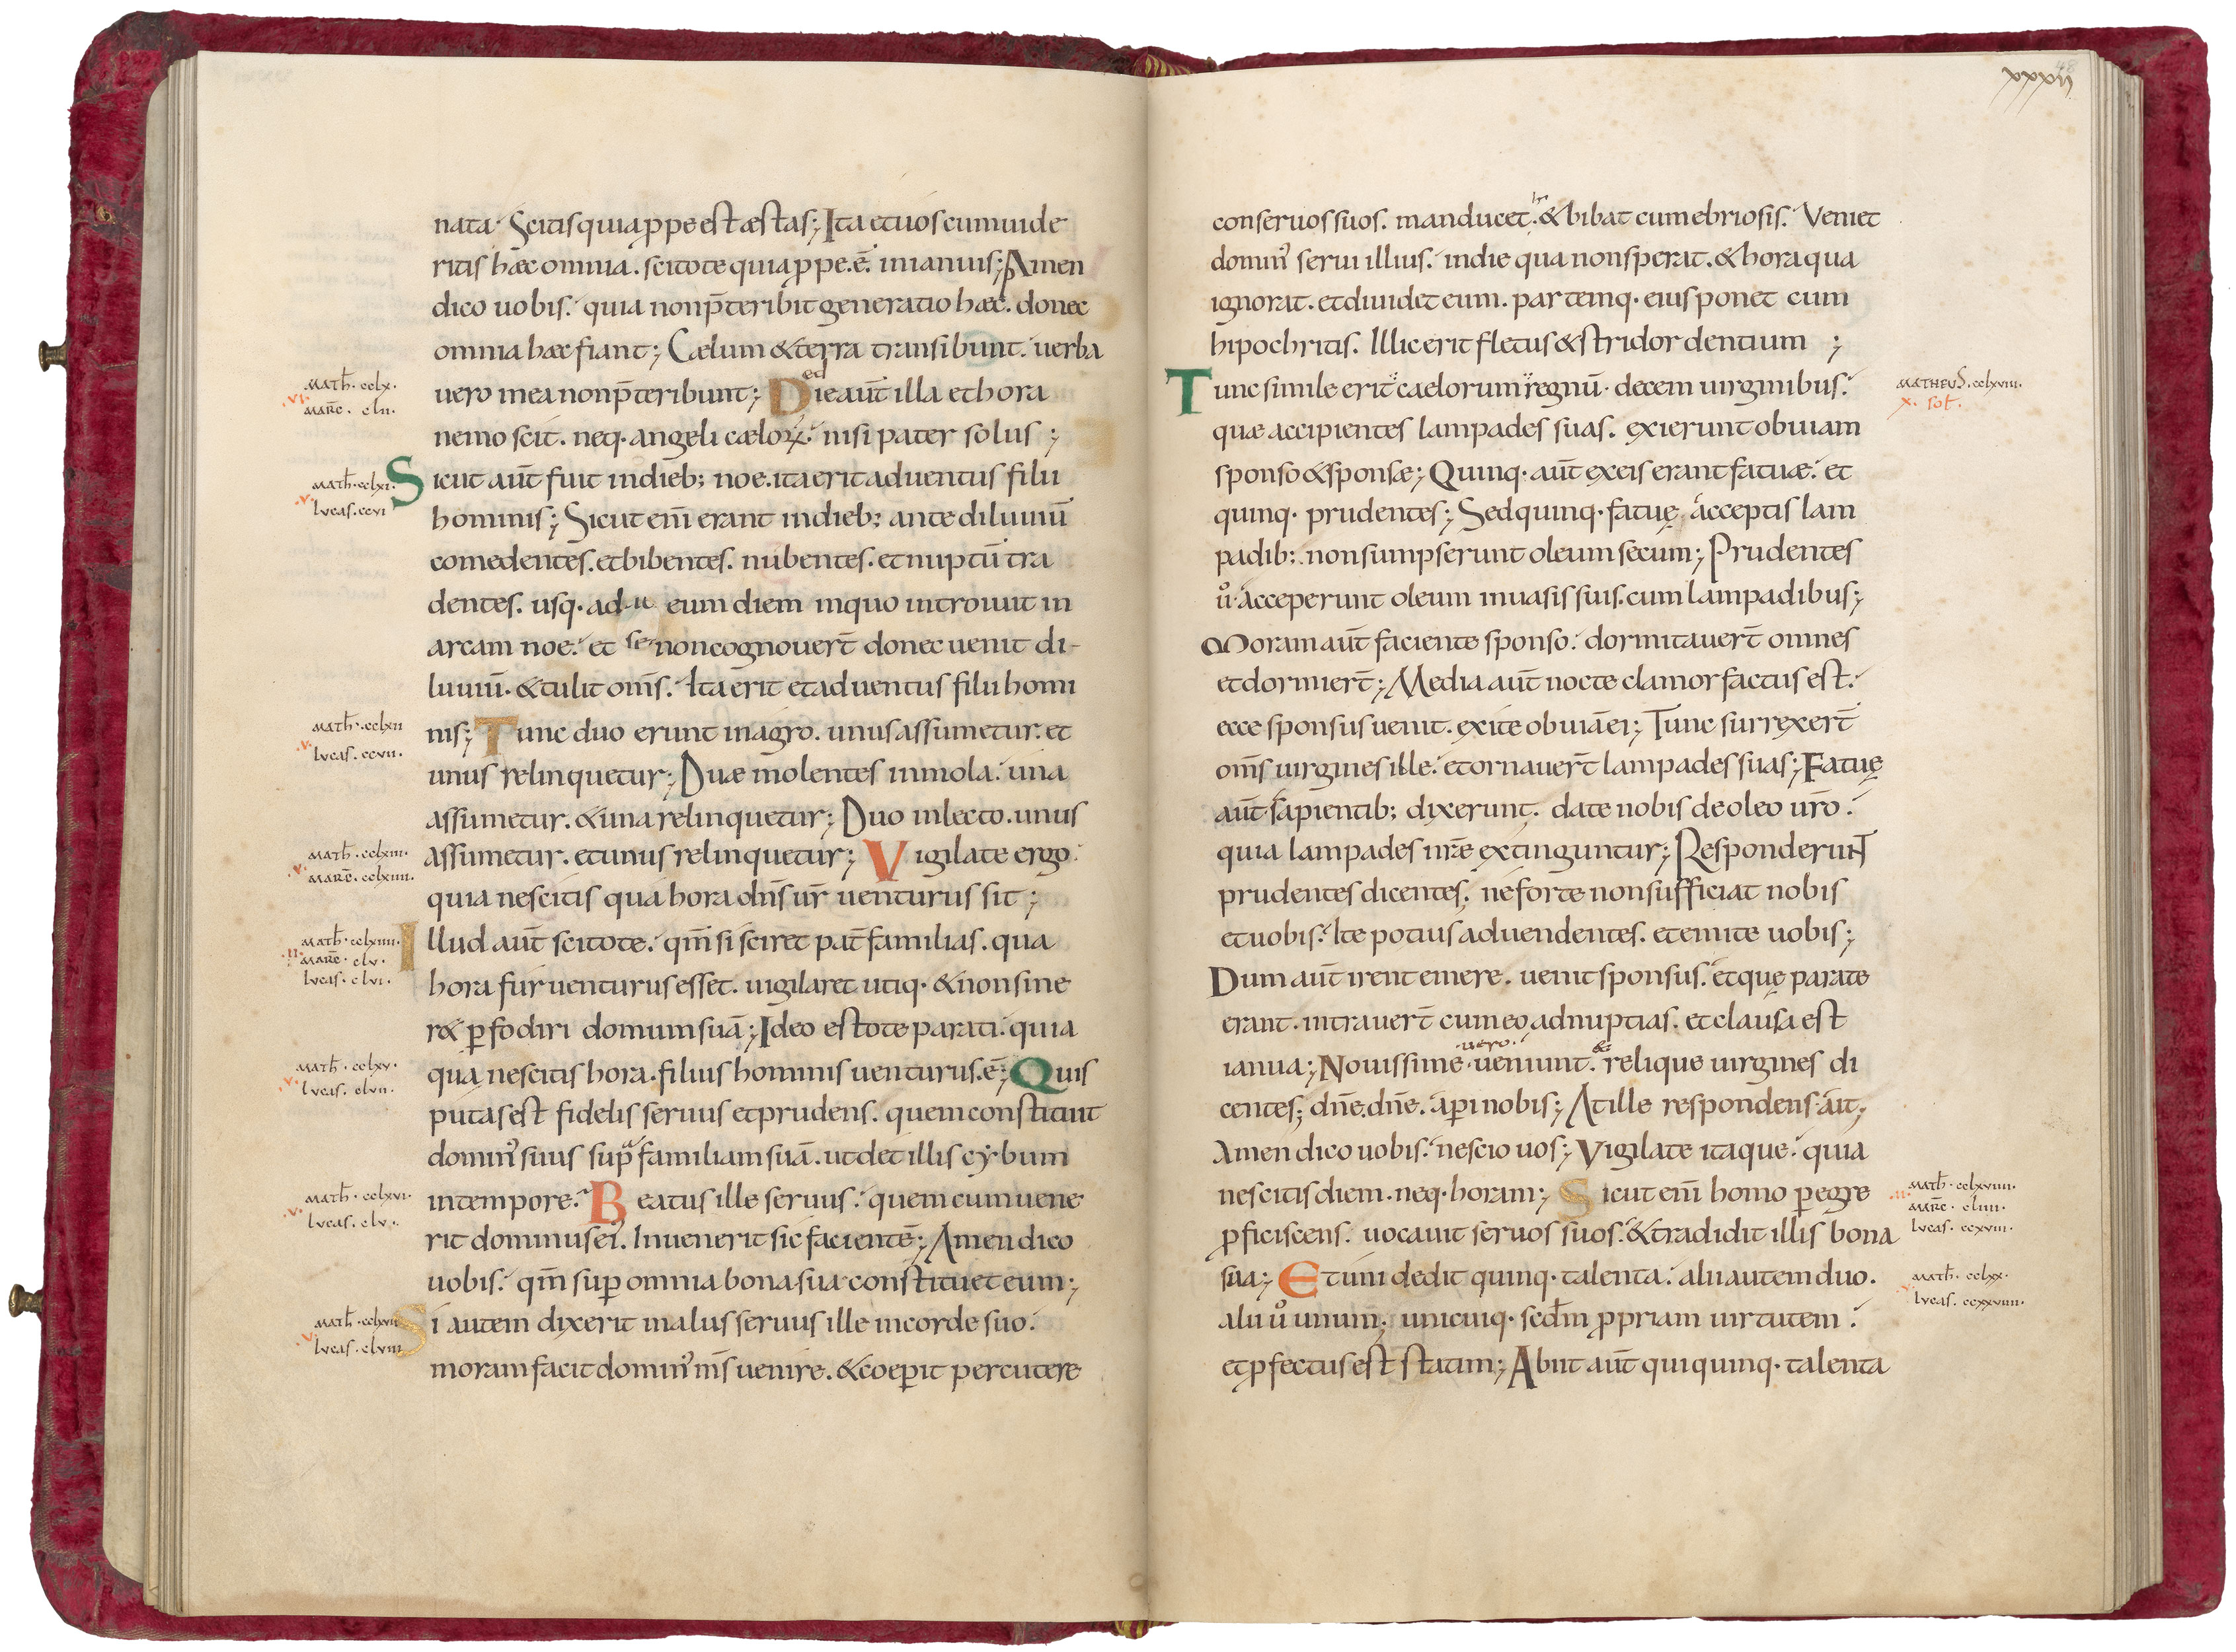 nata. Scitis quia ꝓpe est æstas; Ita et uos cum uide
ritis hæc omnia. scitote quia ꝓpe. ē. in ianuis; Amen
dico uobis. quia non p̄teribit generatio hæc. donec
omnia hæc fiant; Cælum & terra transibunt. uerba
ed
math. cclx.
vero mea non p̄teribunt; Die aūt illa et hora
.vi.
marc. clii.
nemo scit. neq. angeli cæloꝝ. nisi pater solus;
math. cclxi.
Sicut aūt fuit in dieb; noe. ita erit aduentus filii
.v.
lucas. ccvi
hominis; Sicut eni̅ erant in dieb; ante diluuiū
comedentes. et bibentes. nubentes. et nuptū tra
dentes. usq. ad eum diem in quo introiuit in
arcam noe. et se non cognouer̄t donec uenit di-
luuiū. & tulit om̄s. Ita erit et aduentus filii homi
math. cclxii
nis; Tunc duo erunt in agro. unus assumetur. et
.v.
lucas. ccvii.
unus relinquetur; Duæ molentes in mola. una
assumetur. & una relinquetur; Duo in lecto. unus
math. cclxiii.
assumetur. et unus relinquetur; Vigilate ergo.
.v.
marc. cclxiiii.
quia nescitis qua hora dn̄s ur̄ uenturus sit;
math. cclxiiii.
Illud aūt scitote. qm̄ si sciret pat̄ familias. qua
.ii.
marc. clv.
lucas. clvi.
hora fur uenturus esset. uigilaret utiq. & non sine
r& ꝑfodiri domum suā; Ideo estote parati. quia
math. cclxv.
qua nescitis hora. filius hominis uenturus. ē; Quis
.v.
lucas. clvii.
putas est fidelis seruus et prudens. quem constituit
dominꝰ suus supᵃ familiam suā. ut det illis cybum
math. cclxvi.
in tempore. Beatus ille seruus. quem cum uene
.v.
lucas. clv.
rit dominus ei. Inuenerit sic facientē; Amen dico
uobis. qm̄ suꝑ omnia bona sua constituet eum;
math. cclxvii
Si autem dixerit malus seruus ille in corde suo.
.v.
lucas. clviii
moram facit dominꝰ m̄s uenire. & coeperit percutere
xxxii
conseruos suos. manducet. & bibat cum ebriosis. Veniet
dominꝰ serui illius. in die qua non sperat. & hora qua
ignorat. et diuidet eum. partemq. eius ponet cum
hipochritis. Illic erit fletus & stridor dentium;
Tunc simile erit caelorum regnū. decem uirginibus.
matheus. cclxviii.
x. sol.
quæ accipientes lampades suas. exierunt obuiam
sponso & sponsæ; Quinq. aūt ex eis erant fatuæ. et
quinq. prudentes; Sed quinq. fatuę acceptis lam
padib; non sumpserunt oleum secum; Prudentes
uͦ. acceperunt oleum in uasis suis. cum lampadibus;
Moram aūt faciente sponso. dormitauer̄t omnes
et dormier̄t; Media aūt nocte clamor factus est.
ecce sponsus uenit. exite obuiā ei; Tunc surrexer̄t
om̄s uirgines ille. et ornauer̄t lampades suas; Fatuę
aūt sapientib; dixerunt. date nobis de oleo ur̄o.
quia lampades nr̄e extinguntur; Responderunt
prudentes dicentes; ne forte non sufficiat nobis
et uobis. Ite potius ad uendentes. et emite uobis;
Dum aūt irent emere. uenit sponsus. et quę parate
erant. intrauer̄t cum eo ad nuptias. et clausa est
uero. &
ianua; Nouissime ueniunt. relique uirgines di
centes; dn̄e. dn̄e. aperi nobis; At ille respondens ait;
Amen dico uobis. nescio uos; Vigilate itaque. quia
nescitis diem. neq. horam; Sicut eni̅ homo ꝑegre
math. cclxviiii.
.ii.
marc. cliiii.
ꝓficiscens. uocauit seruos suos. & tradidit illis bona
lucas. ccxviii.
sua; Et uni dedit quinq. talenta. alii autem duo.
math. cclxx.
.v.
lucas. ccxxviiii.
alii uͦ unum; unicuiq. scd̄m ꝓpriam uirtutem.
et ꝓfectus est statim; Abiit aūt qui quinq. talenta